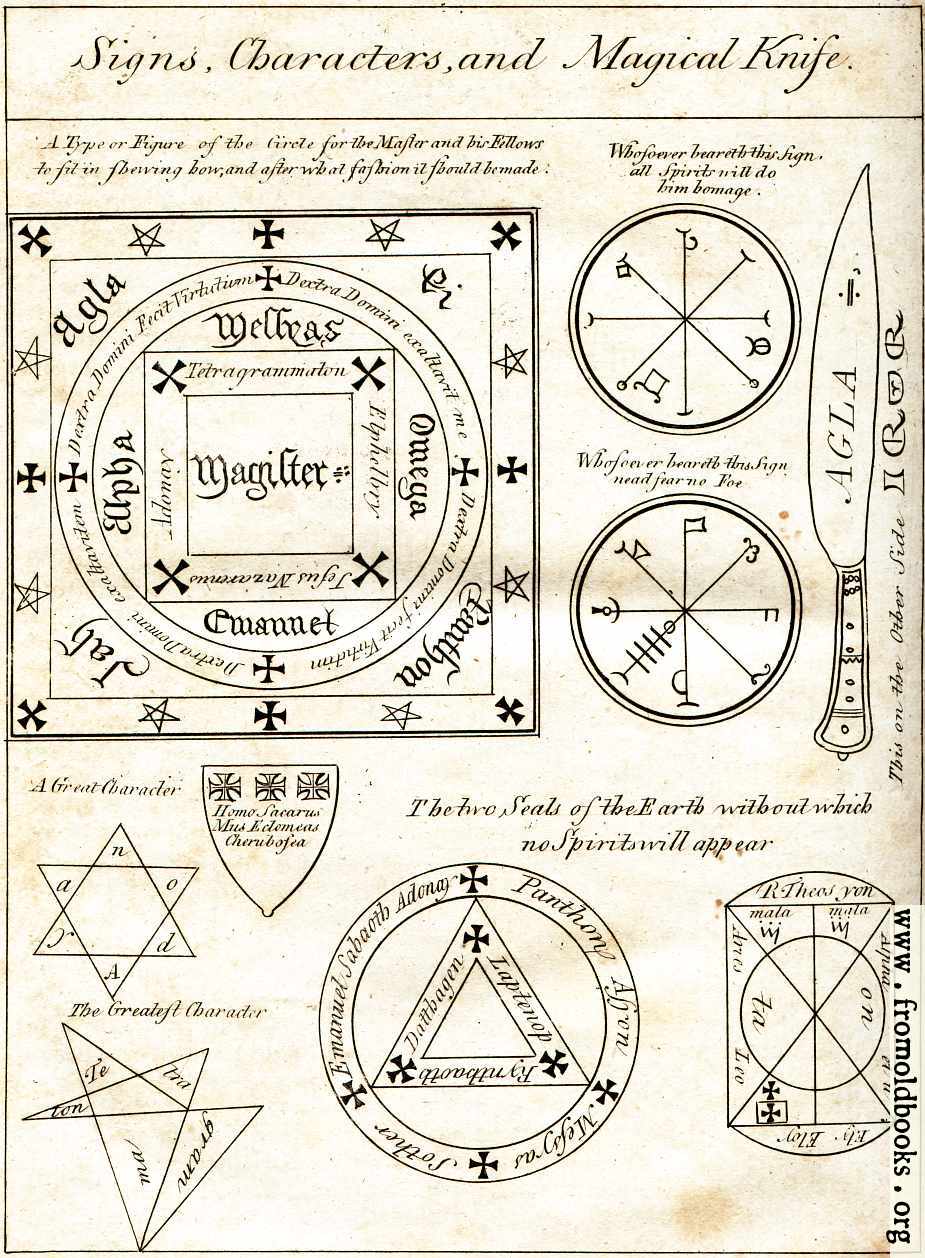 Signs, Characters, and Magical Knife.
A Type or Figure of the Circle for the Maſter and his Fellows
to ſit in ſhewing how, and after what faſhion it ſhould be made:
Agla
Dextra Domini Fecit Virtutium
Dextra Domini exaltavit me
Dextra Domini fecit Virtutim
Dextra Domini
Meſſyas
Alpha
Omega
Emanuel
Tetragrammaton
Adonay
Jeſus Nazarenus
Magiſter
Jah
Panthon
Whoſoever beareth this Sign,
all Spirits will do
him homage.
Whoſoever beareth this Sign
nead fear no Foe
AGLA
This on the Other Side
A Great Character
n
a
o
d
A
Homo Sacarus
Mus Eclomeas
Cheruboſea
The two Seals of the Earth without which
no Spirits will appear
Emanuel Sabaoth Adonay
Panthon
Meſſyas
Sother
Laptenop
R Theos yon
mala
mala
on
ta
Leo
Ely Eloy
The Greateſt Character
Te
tra
gram
ma
ton
www.fromoldbooks.org